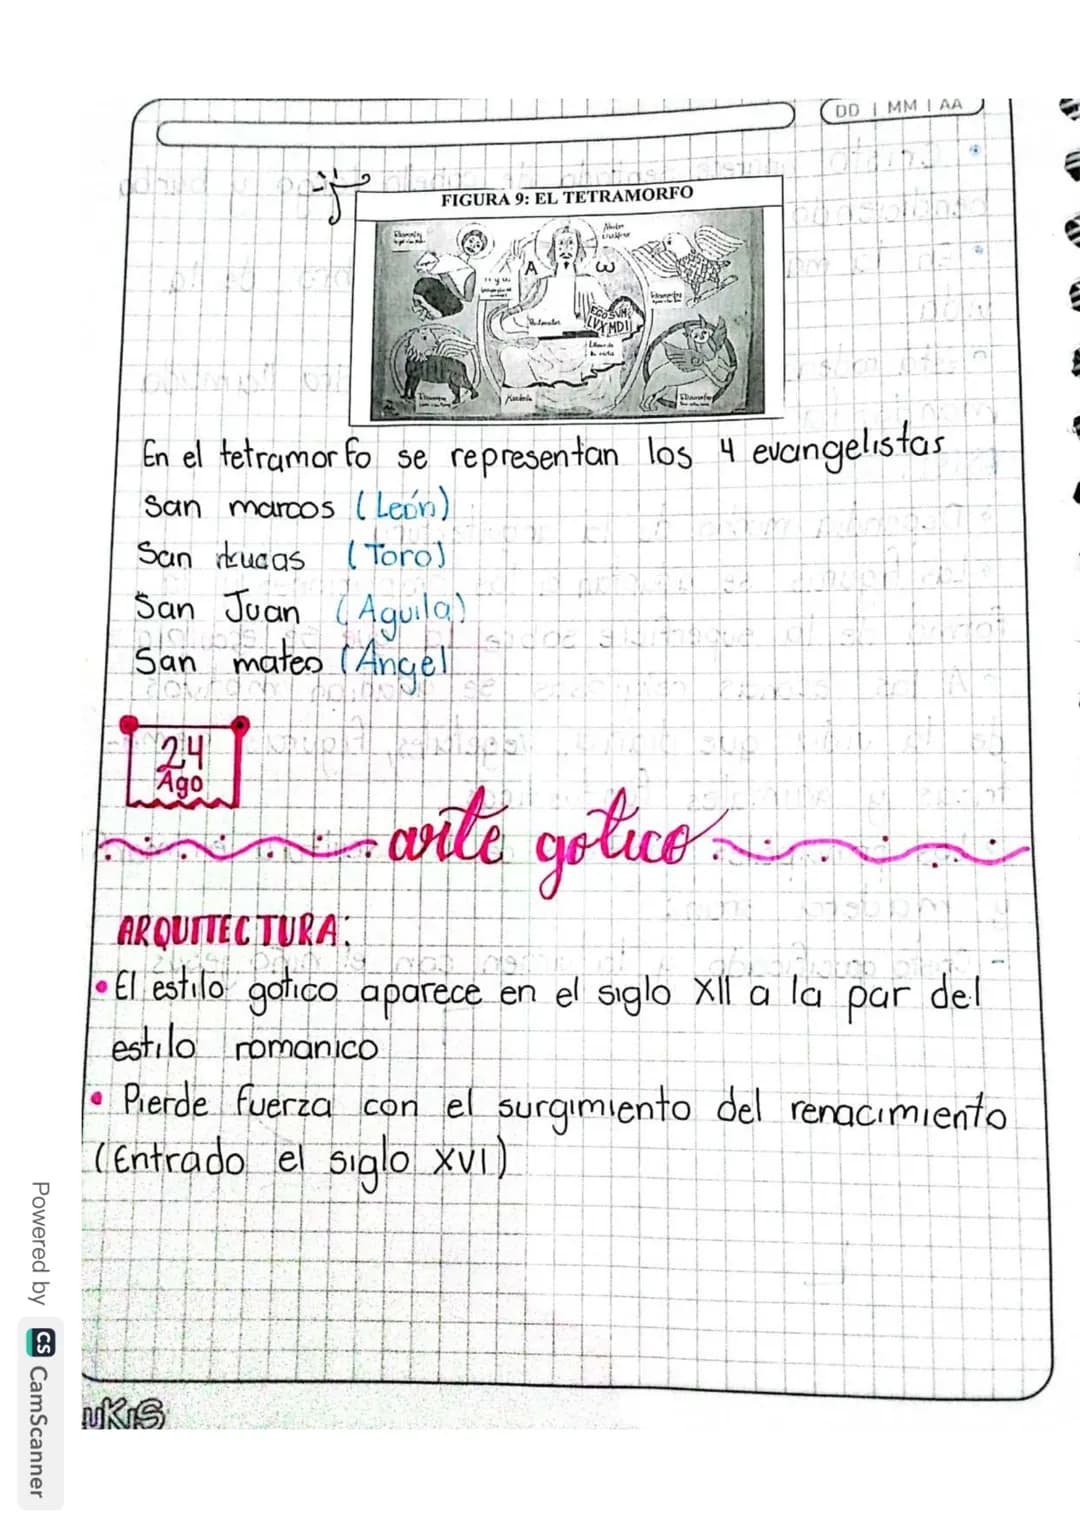 DD | MM | AA
FIGURA 9: EL TETRAMORFO
A ω
EGO SUM
LUX MDI
En el tetramorfo se representan los 4 evangelistas
San marcos (León)
San Lucas (Toro)
San Juan (Aguila)
San mateo (Angel
24
Ago
arte gotico
ARQUITECTURA:
• El estilo gotico aparece en el siglo XII a la par del
estilo romanico
• Pierde fuerza con el surgimiento del renacimiento
(Entrado el siglo XVI)
Powered by CS CamScanner